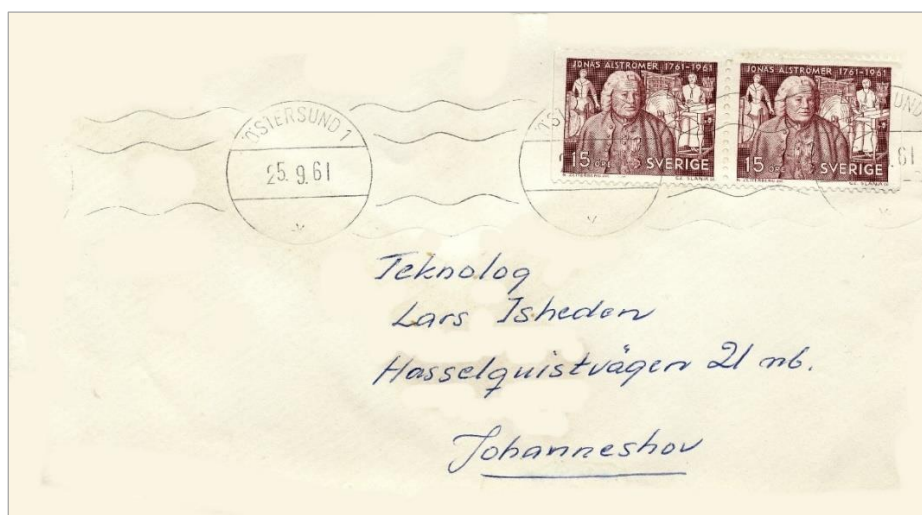 ÖSTERSUND 1
25.9.61
JONAS ALSTRÖMER 1761-1961
15 ÖRE SVERIGE
JONAS ALSTRÖMER 1761-1961
15 ÖRE SVERIGE
61
Teknolog
Lars Isheden
Hasselquistvägen 21 nb.
Johanneshov